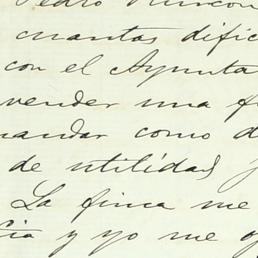 Pedro Rincon
cuantas dific
con el Ayunta
vender una f
mandar como d
de utilidad y
La finca me
cia y yo me of